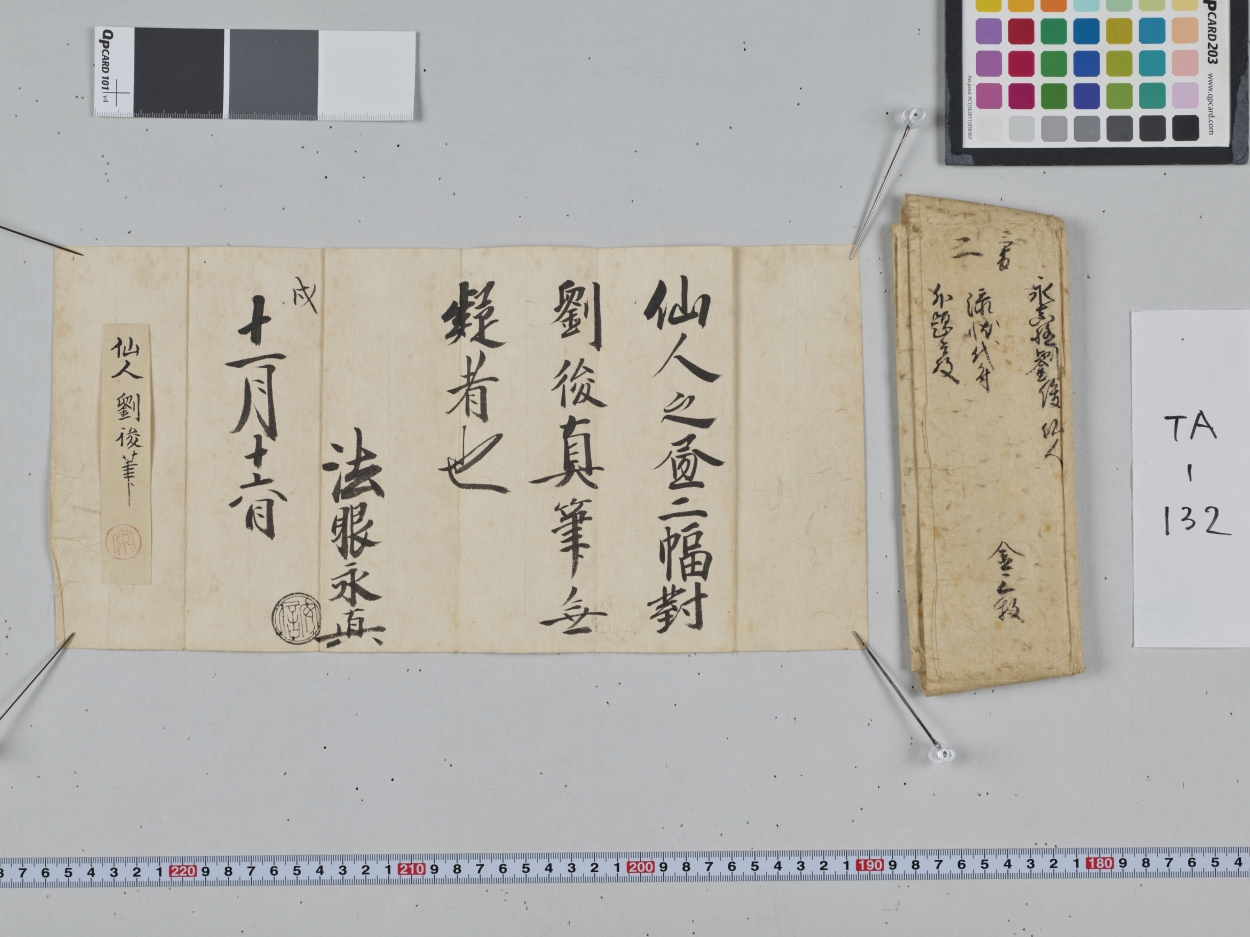 仙人之画二幅對
劉俊真筆無
疑者也
法眼永真
戌
十一月十六日
仙人 劉俊筆
永真極劉俊仙人
添状代付
外題二枚
二番
二
金三枚
TA
1
132
QPCARD 101 v4
QPCARD 203
www.qpcard.com
8 7 6 5 4 3 2 1 220 9 8 7 6 5 4 3 2 1 210 9 8 7 6 5 4 3 2 1 200 9 8 7 6 5 4 3 2 1 190 9 8 7 6 5 4 3 2 1 180 9 8 7 6 5 4